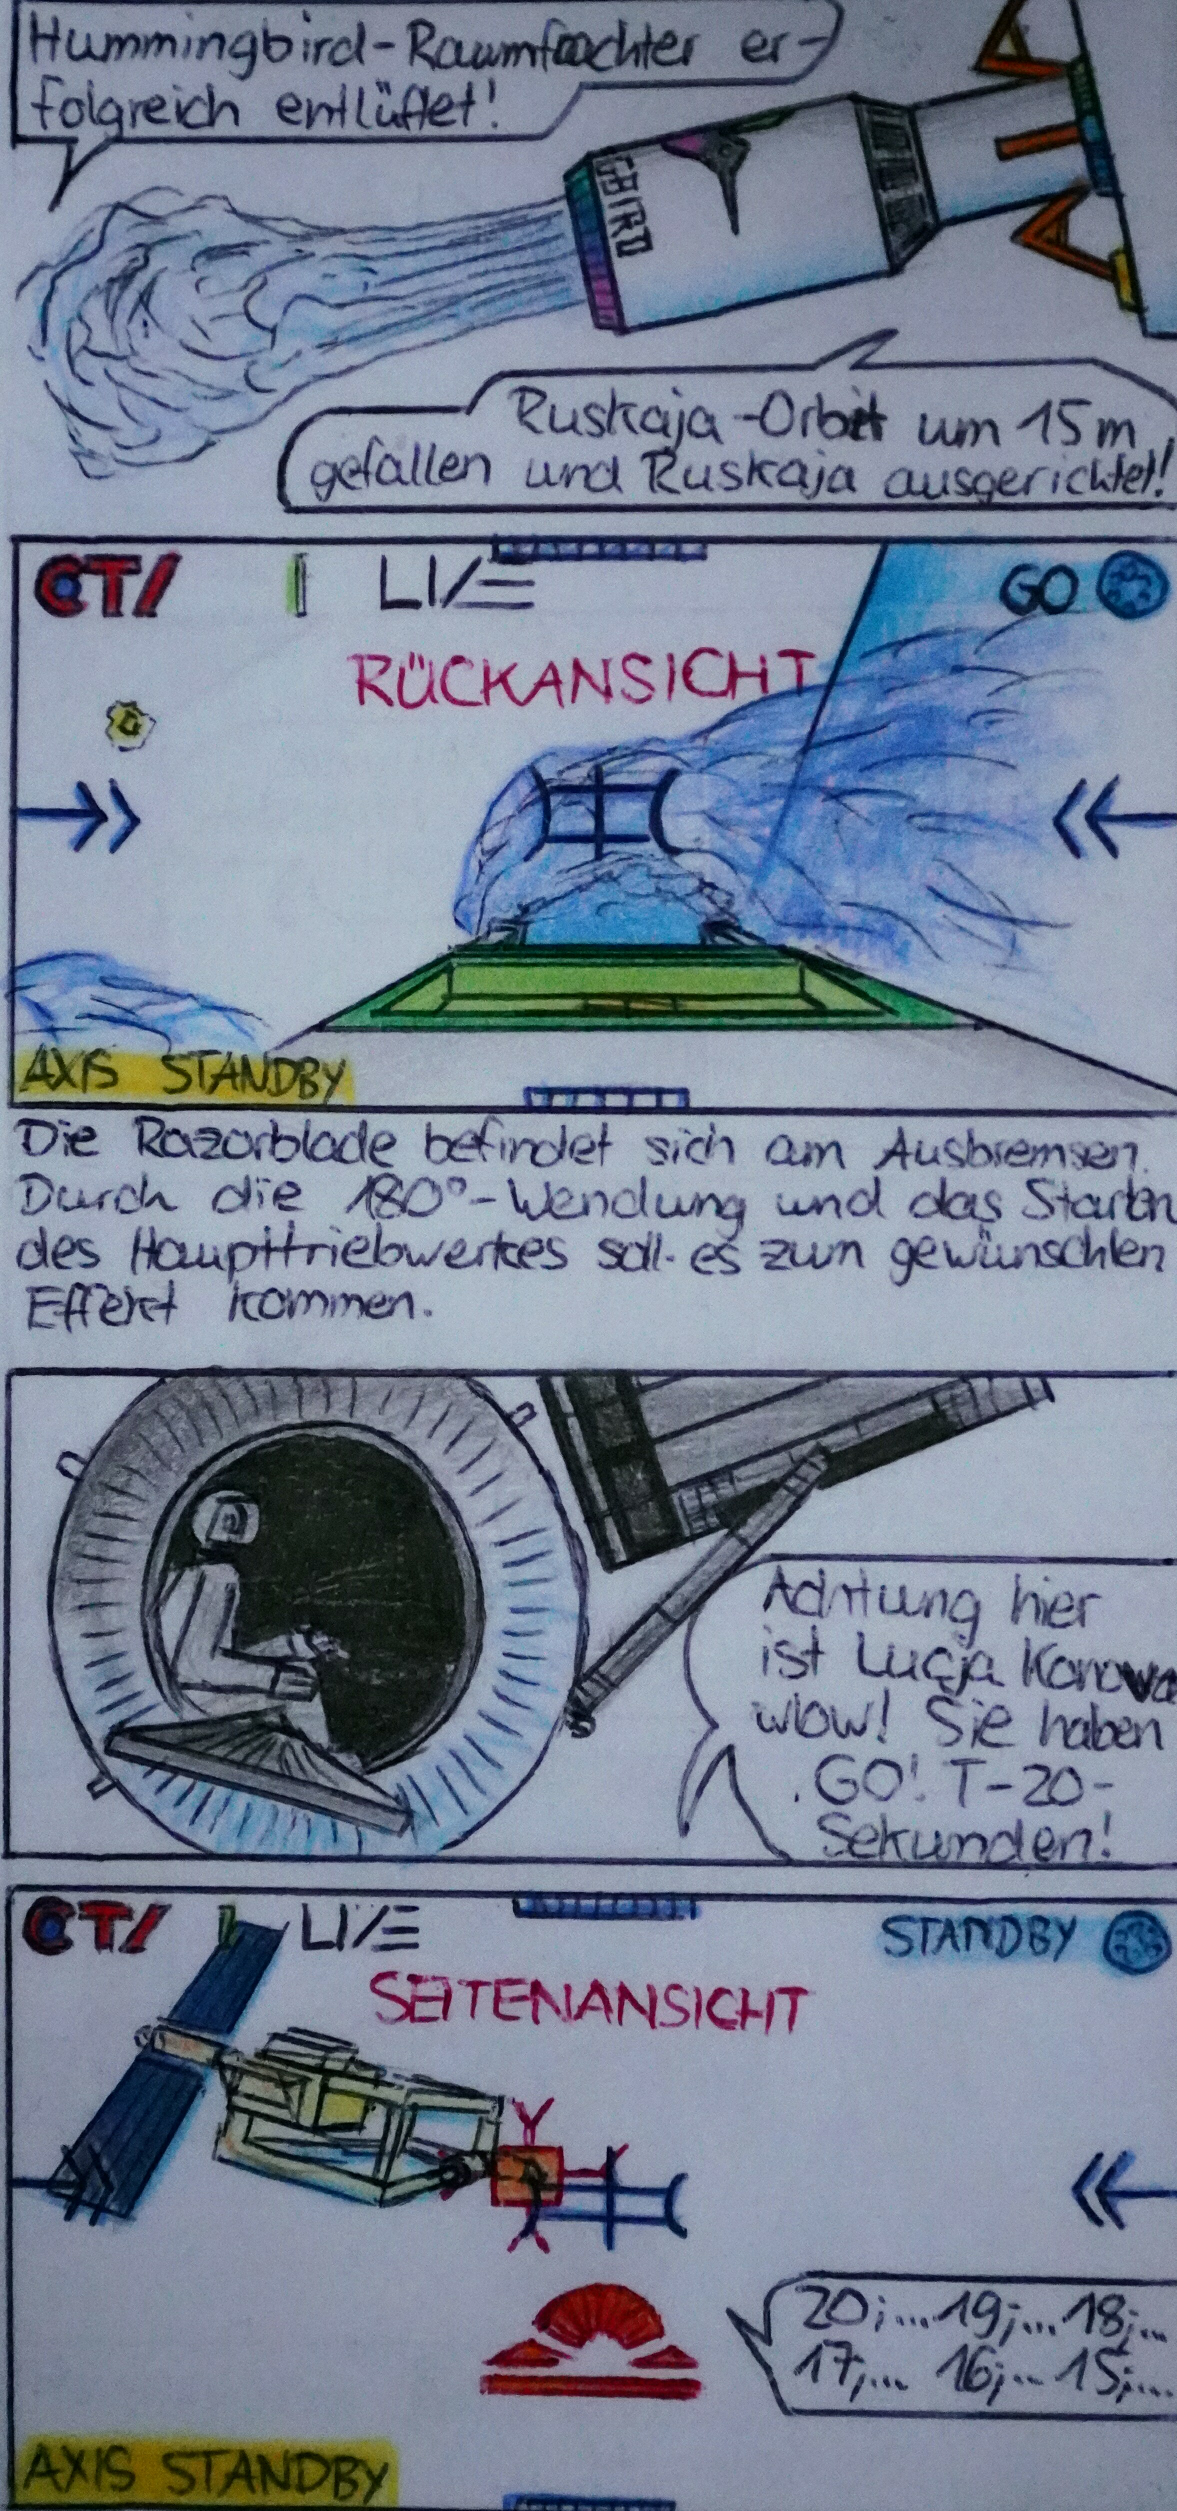 Hummingbird-Raumfrachter er-
folgreich entlüftet!
GBIRD
Ruskaja-Orbit um 15m
gefallen und Ruskaja ausgerichtet!
CT/ LIVE GO
RÜCKANSICHT
AXIS STANDBY
Die Razorblade befindet sich am Ausbremsen.
Durch die 180°-Wendung und das Starten
des Haupttriebwerkes soll es zum gewünschten
Effekt kommen.
Achtung hier
ist Lucja Konowa
wlow! Sie haben
GO! T-20-
Sekunden!
CT/ LIVE STANDBY
SEITENANSICHT
20;...19;...18;...
17;... 16;...15;...
AXIS STANDBY